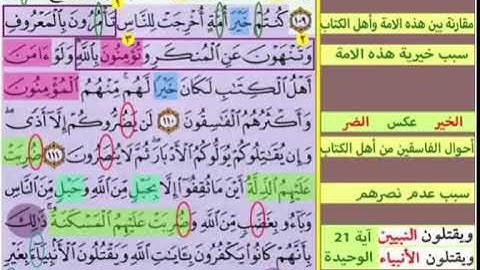 ١٠٩ كُنتُمْ خَيْرَ أُمَّةٍ أُخْرِجَتْ لِلنَّاسِ تَأْمُرُونَ بِالْمَعْرُوفِ
وَتَنْهَوْنَ عَنِ الْمُنكَرِ وَتُؤْمِنُونَ بِاللَّهِ وَلَوْ ءَامَنَ
أَهْلُ الْكِتَابِ لَكَانَ خَيْرًا لَّهُم مِّنْهُمُ الْمُؤْمِنُونَ
وَأَكْثَرُهُمُ الْفَاسِقُونَ ١١٠ لَن يَضُرُّوكُمْ إِلَّا أَذًى
وَإِن يُقَاتِلُوكُمْ يُوَلُّوكُمُ الْأَدْبَارَ ثُمَّ لَا يُنصَرُونَ ١١١ ضُرِبَتْ
عَلَيْهِمُ الذِّلَّةُ أَيْنَ مَا ثُقِفُوا إِلَّا بِحَبْلٍ مِّنَ اللَّهِ وَحَبْلٍ مِّنَ النَّاسِ
وَبَاءُو بِغَضَبٍ مِّنَ اللَّهِ وَضُرِبَتْ عَلَيْهِمُ الْمَسْكَنَةُ ذَٰلِكَ
بِأَنَّهُمْ كَانُوا يَكْفُرُونَ بِـَٔايَاتِ اللَّهِ وَيَقْتُلُونَ الْأَنبِيَاءَ بِغَيْرِ
مقارنة بين هذه الامة وأهل الكتاب
سبب خيرية هذه الامة
الخير عكس الضر
أحوال الفاسقين من أهل الكتاب
سبب عدم نصرهم
ويقتلون النبيين آية 21
ويقتلون الأنبياء الوحيدة